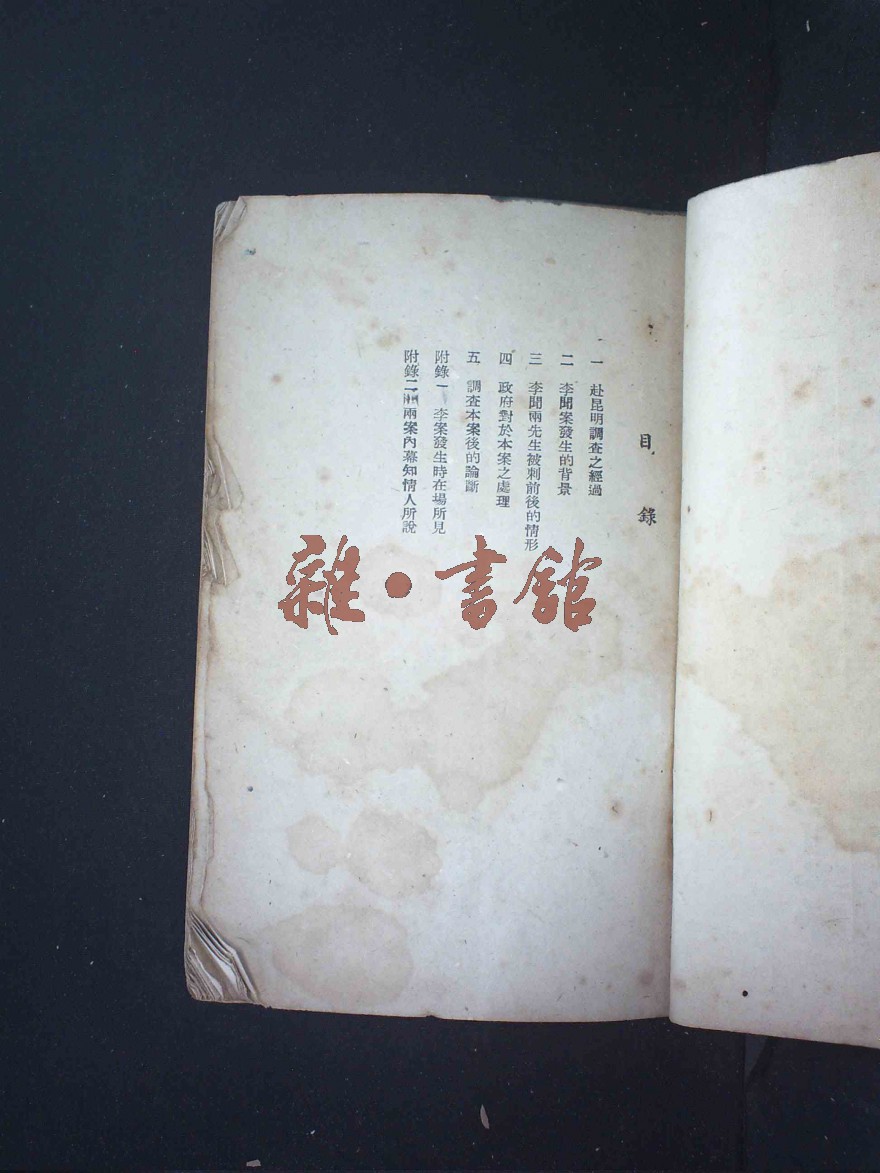 目錄
一 赴昆明調查之經過
二 李聞案發生的背景
三 李聞兩先生被刺前後的情形
四 政府對於本案之處理
五 調查本案後的論斷
附錄一 李案發生時在場所見
附錄二 兩案內幕知情人所說
雜·書館